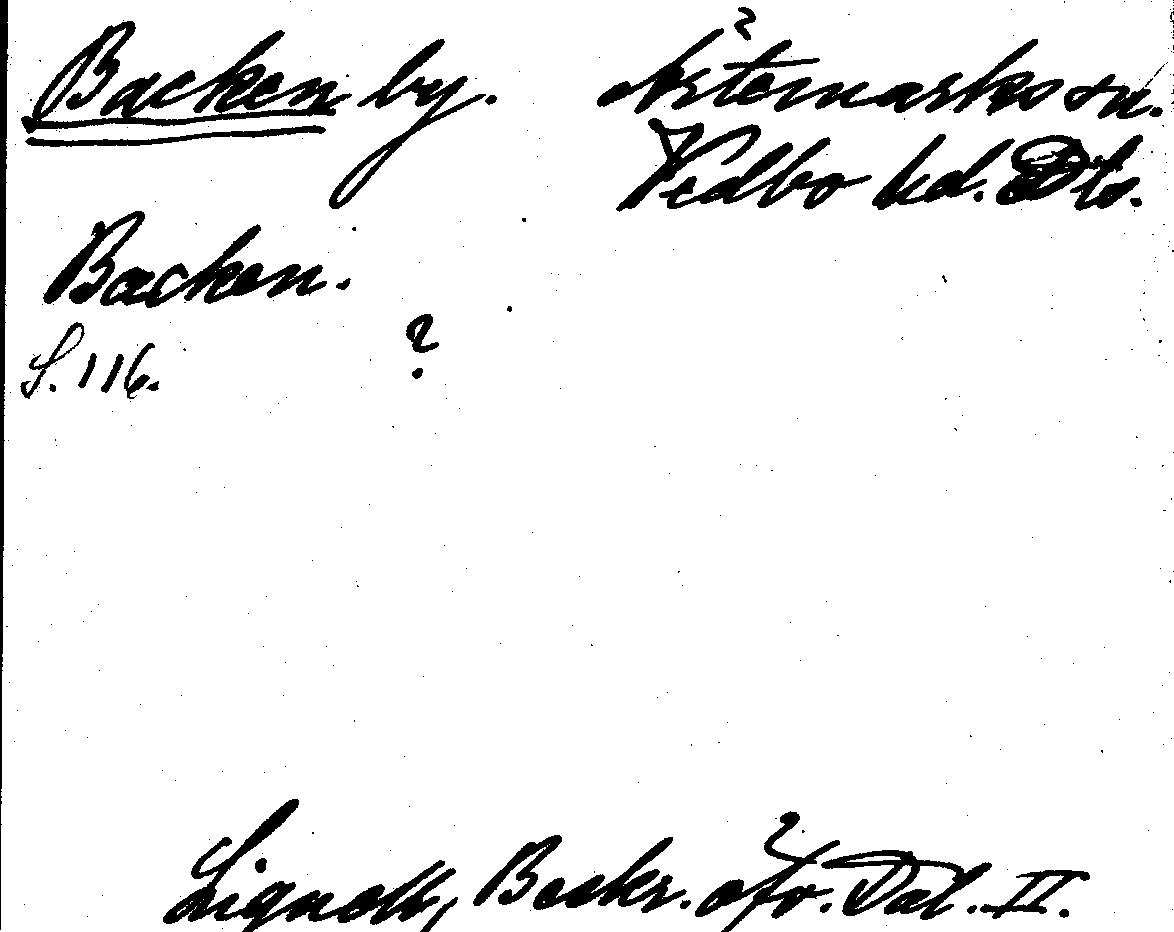 Backen by. Ärtemarks sn.
Vedbo hd. Dls.
Backen.
S. 116. ?
Lignell, Beskr. öfv. Dal. II.